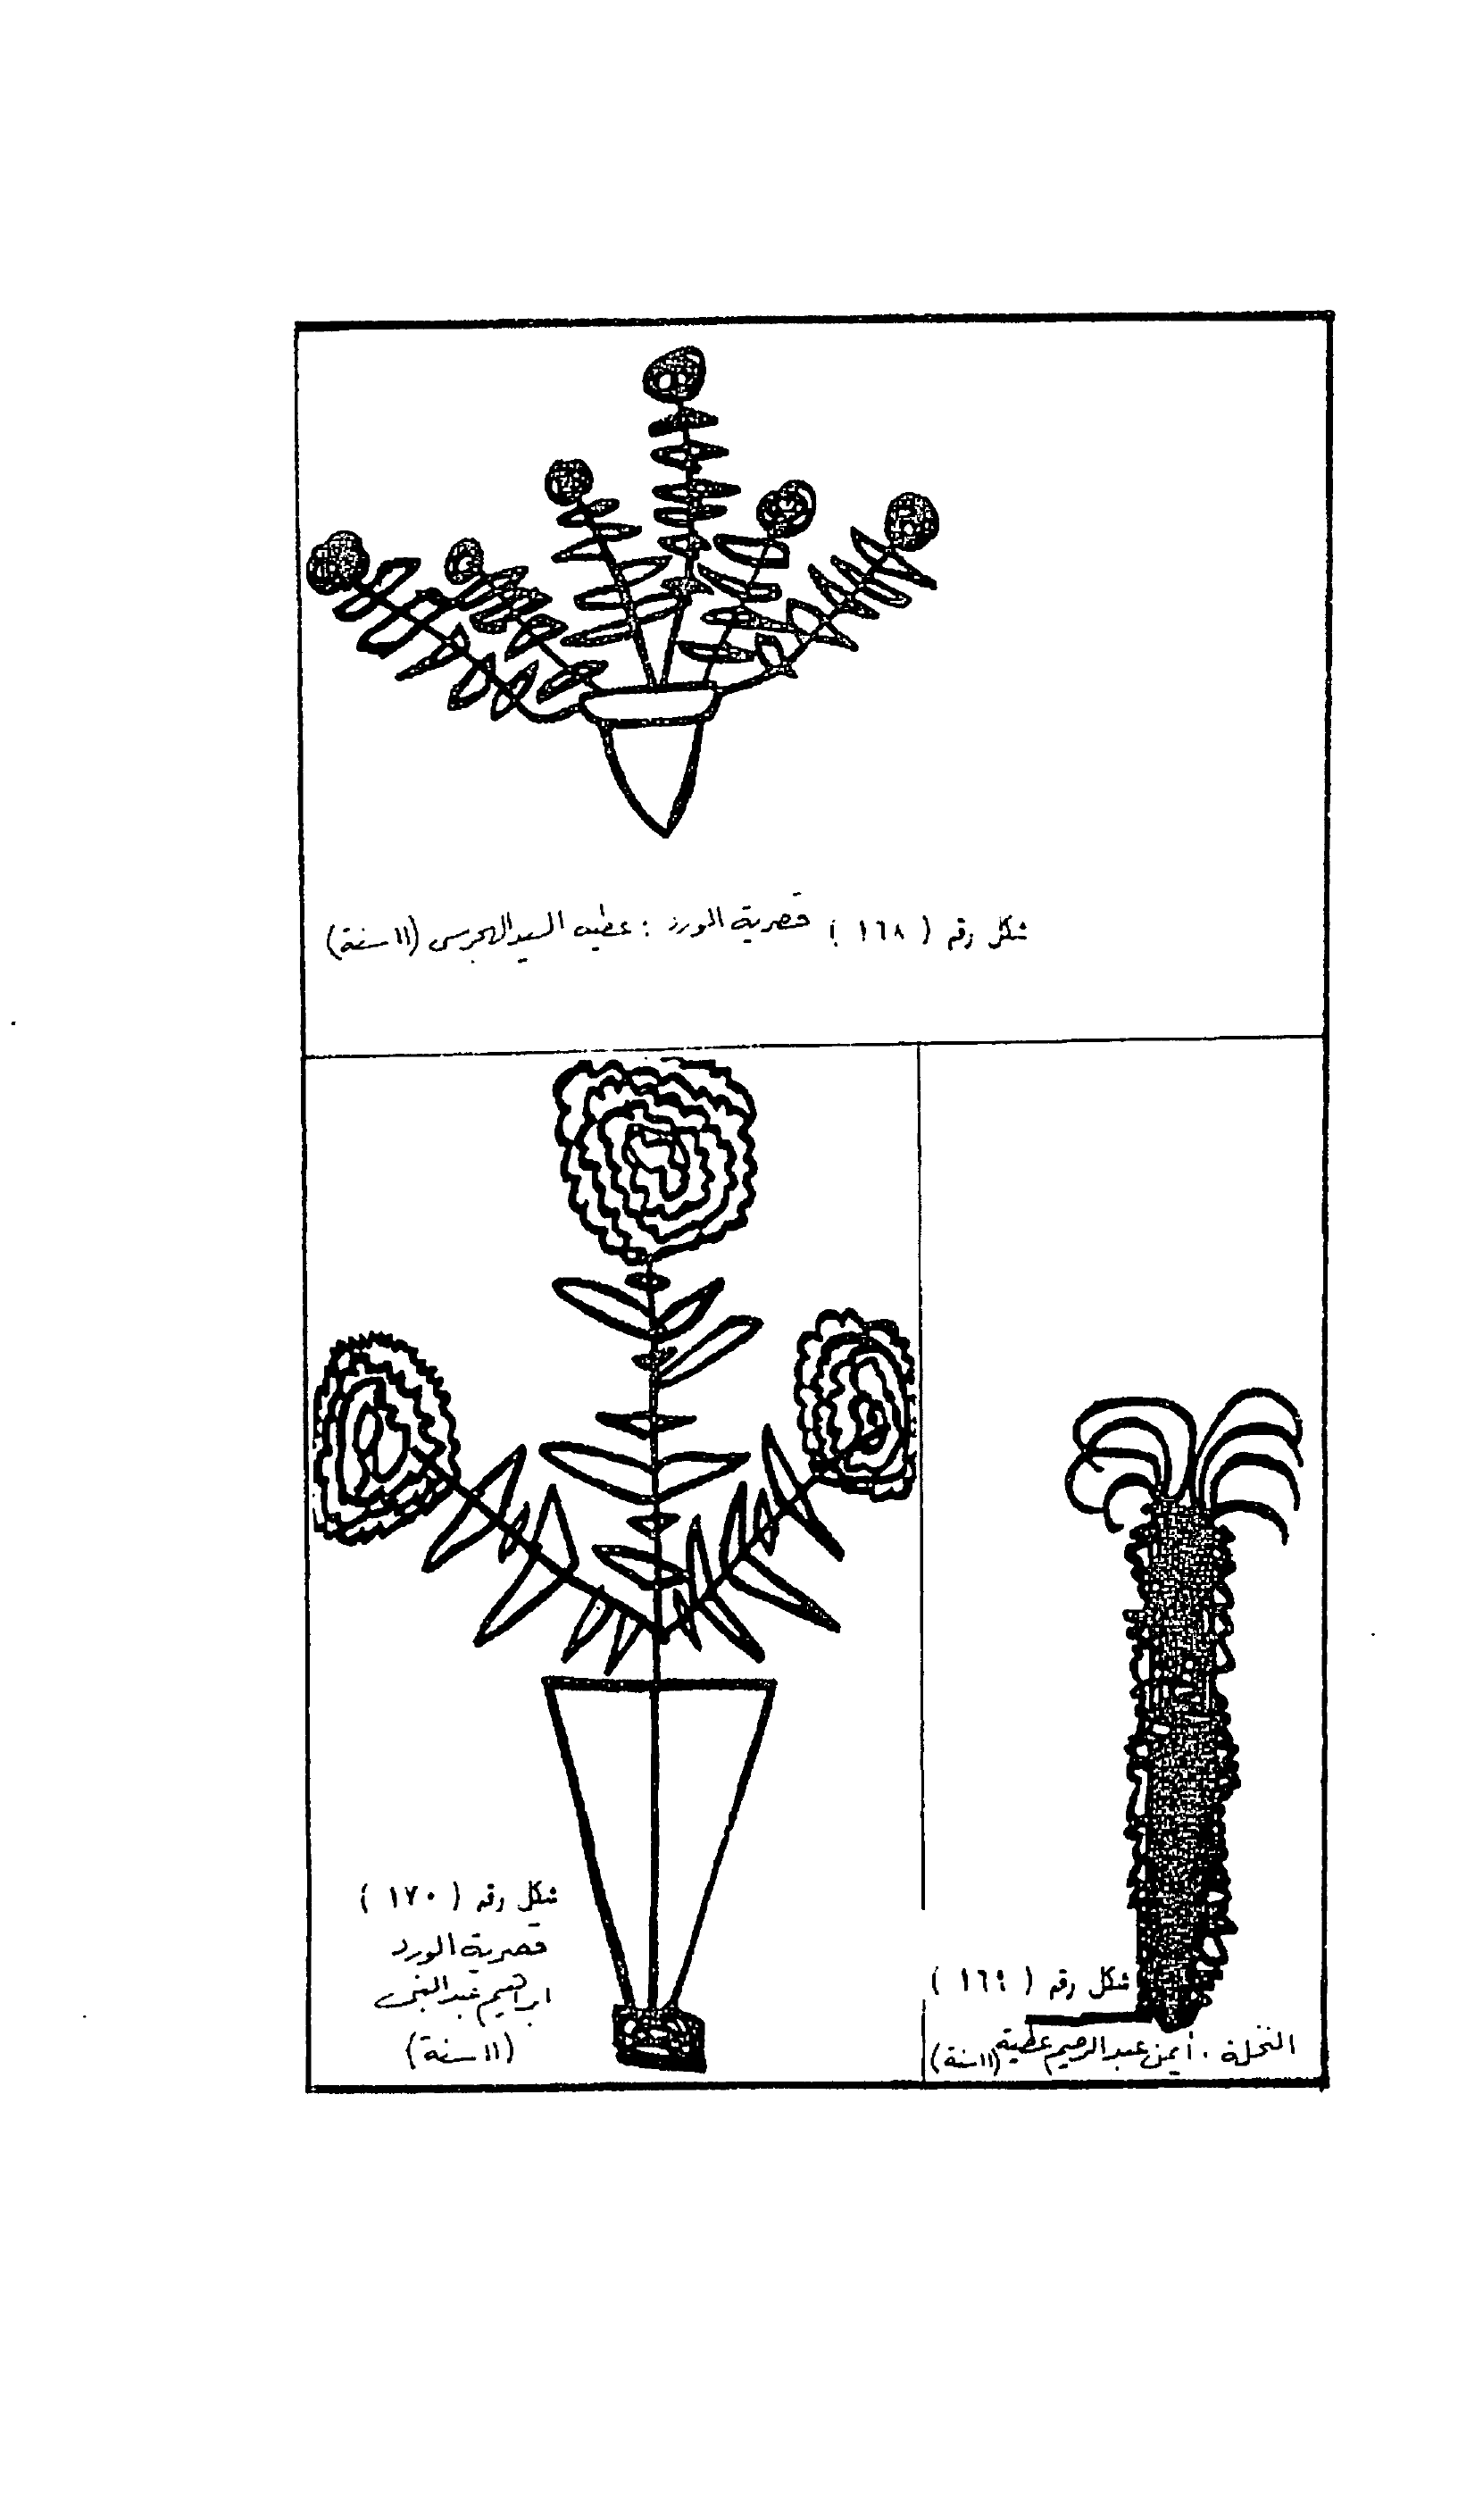 شكل رقم ( ١٦٨ ) قصرية الورد : عطيه السيد الهجرسى (١١ سنة)
شكل رقم ( ١٦٩ )
النخلة : أيمن عبد الرحيم عطية (١١ سنة)
شكل رقم ( ١٧٠ )
قصرية الورد
ابراهيم عبد النبى
(١١ سنة)